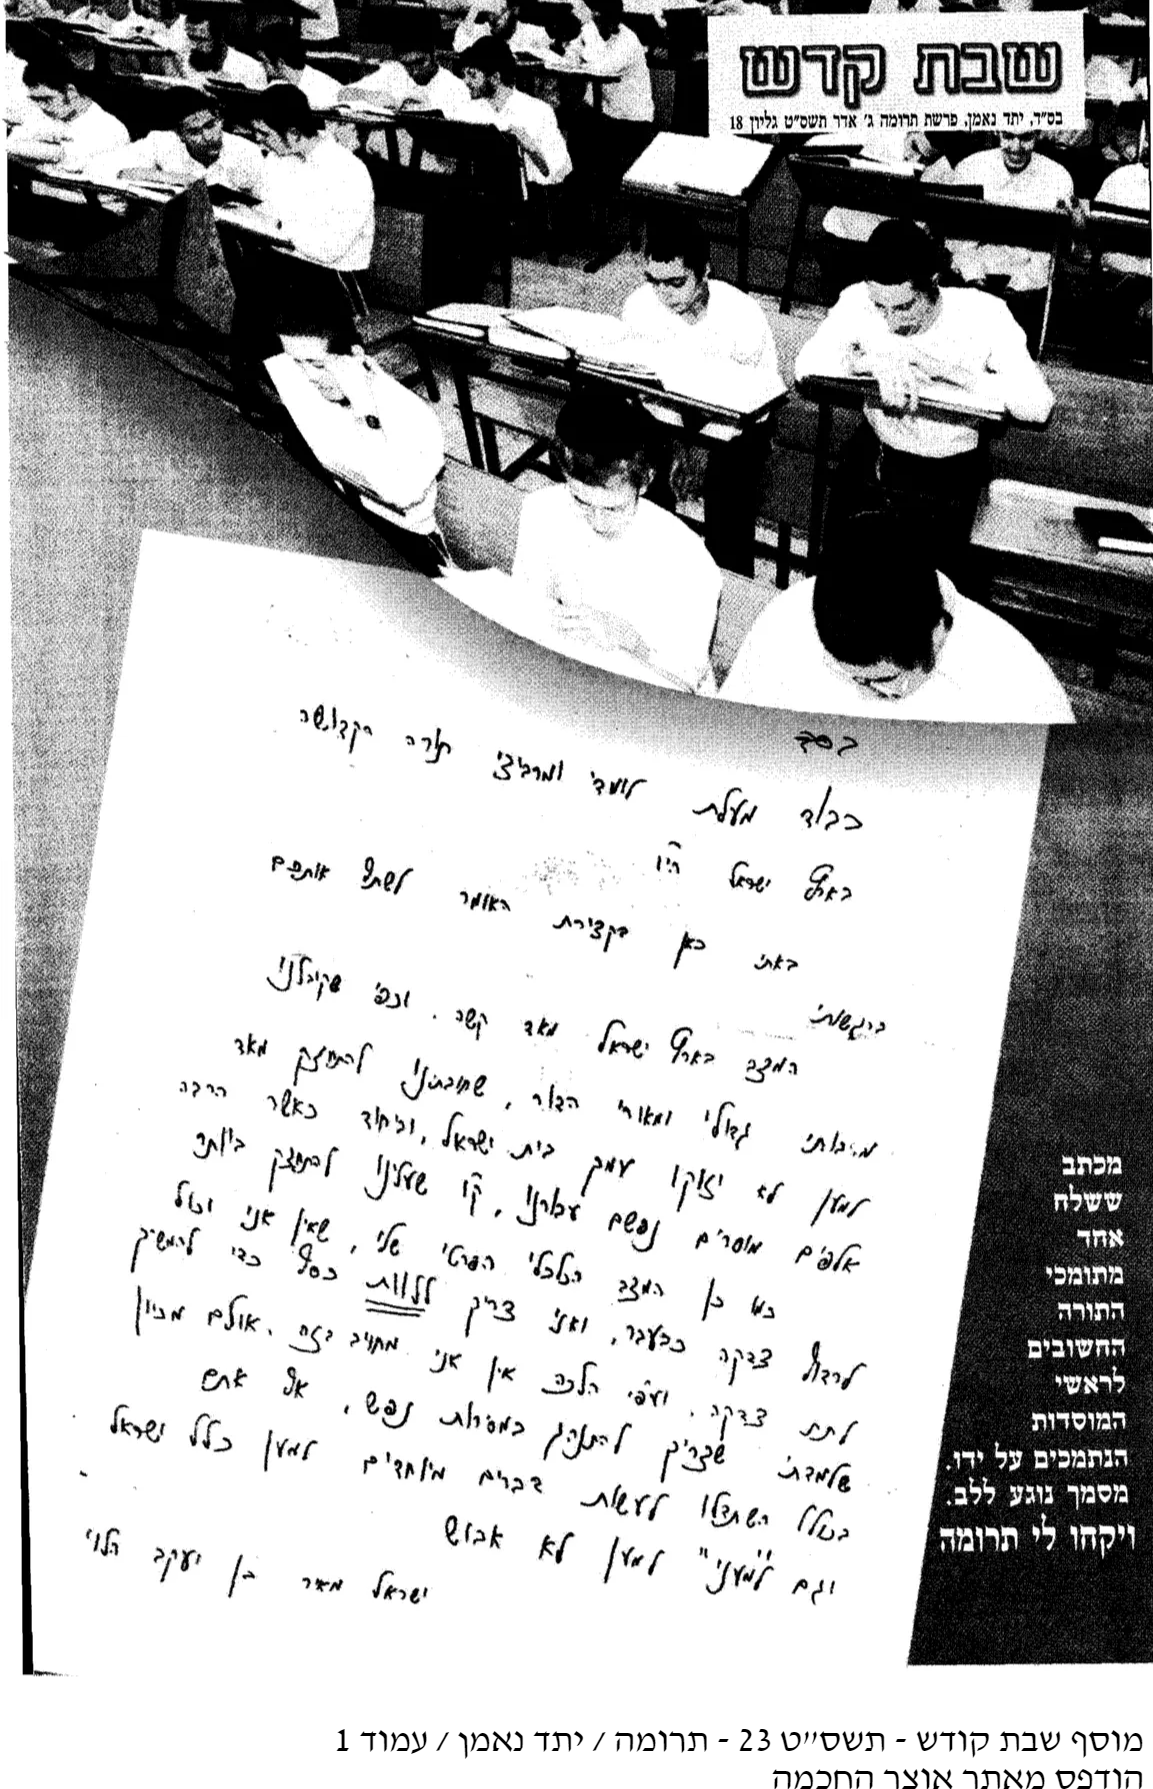 שבת קדש
בס"ד, יתד נאמן, פרשת תרומה ג' אדר תשס"ט גליון 18
בסד
כבוד מעלת לומדי ומרביצי תורה הקדושה
בארץ ישראל הי"ו
באתי כאן בקצירת האומר לשתף אותכם
ברגשותי
המצב בארץ ישראל מאד קשה. וכפי שקיבלנו
גדולי ומאורי הדור, שחובתינו להתחזק מאד
למען לא יזוקו עמך בית ישראל, וביחוד כאשר הרבה
אלפים מוסרים נפשם עבורנו, ק"ו שעלינו להתחזק ביותר
כמו כן המצב הכלכלי הפרטי שלי, שאין אני יכול
לרדוף צדקה כבעבר, ואני צריך ללוות כסף כדי להמשיך
לתת צדקה. ועפ"י הלכה אין אני מחויב בזה. אולם מכיון
שלמדתי שצריך להתנהג במסירות נפש, אף אתם
בכולל השתדלו לעשות דברים מיוחדים למען כלל ישראל
וגם "למעני" למען לא אבוש
ישראל מאיר בן יעקב הלוי
מכתב
ששלח
אחד
מתומכי
התורה
החשובים
לראשי
המוסדות
הנתמכים על ידו.
מסמך נוגע ללב.
ויקחו לי תרומה
מוסף שבת קודש - תשס״ט 23 - תרומה / יתד נאמן / עמוד 1
הודפס מאתר אוצר החכמה